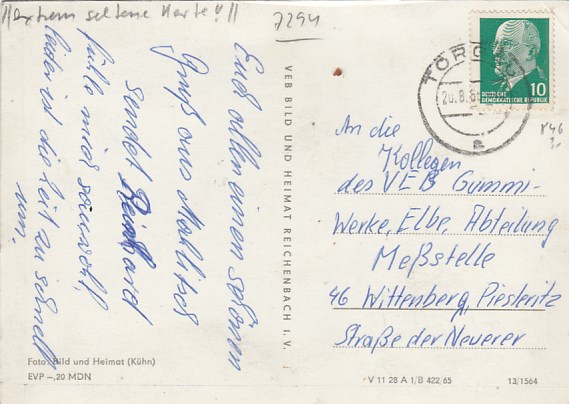 extrem seltene Karte!!
7294
Euch allen einen schönen
Gruß aus
sendet Reinhard
fühle mich sauwohl,
leider ist die Zeit zu schnell
um.
VEB BILD UND HEIMAT REICHENBACH I. V.
Foto: Bild und Heimat (Kühn)
EVP –,20 MDN
TORG
DEUTSCHE
DEMOKRATISCHE REPUBLIK
10
a
An die
Kollegen
des VEB Gummi-
Werke, Elbe, Abteilung
Meßstelle
46 Wittenberg, Piesteritz
Straße der Neuerer
V 11 28 A 1/B 422/65
13/1564